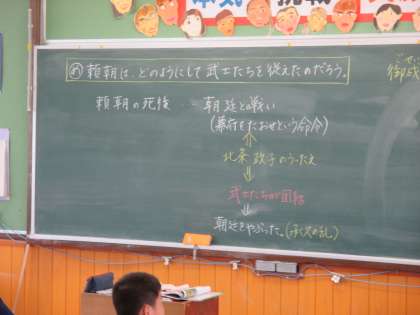 本気 挑戦
め 頼朝は、どのようにして武士たちを従えたのだろう。
頼朝の死後 朝廷と戦い
(幕府をたおせという命令)
北条政子のうったえ
武士たちが団結
朝廷をやぶった。(承久の乱)
御成